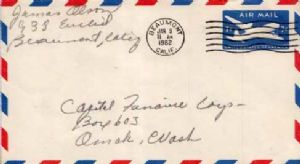 James Olson
933 Euclid
Beaumont, Calif
BEAUMONT
JAN 9
11 AM
1962
CALIF.
AIR MAIL
Capitol Furniture Co
Box 603
Omak, Wash